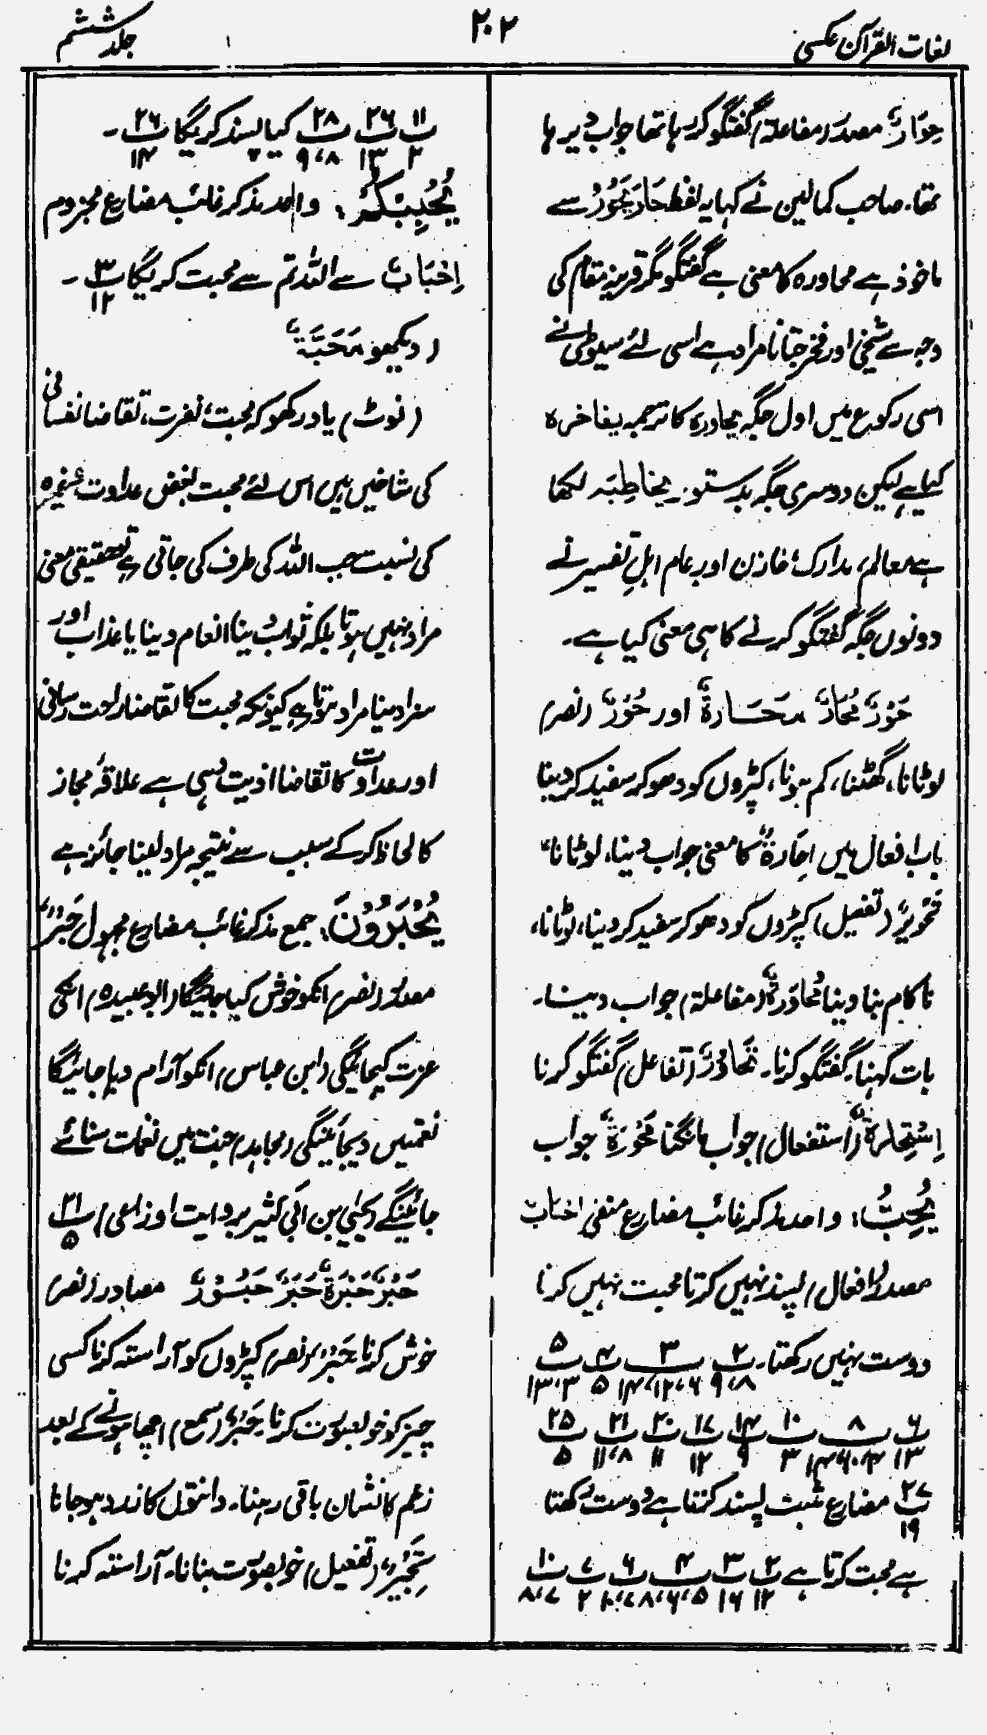 لغات القرآن عکسی
۲۰۲
جلد ششم
حِوَارٌ مصدر (مفاعلۃ) گفتگو کر رہا تھا جواب دیرہا
تھا۔ صاحب کمالین نے کہا یہ لفظ حَارَ یَحُوْرُ سے
ماخوذ ہے محاورہ کا معنی ہے گفتگو مگر قرینۂ مقام کی
وجہ سے شیخی اور فخر جتانا مراد ہے اسی لئے سیوطی نے
اسی رکوع میں اول جگہ یحاورہ کا ترجمہ یفاخرہ
کیا ہے لیکن دوسری جگہ بدستور یخاطبہ لکھا
ہے معالم، مدارک، خازن اور عام اہلِ تفسیر نے
دونوں جگہ گفتگو کرنے کا ہی معنی کیا ہے۔
حَوْرٌ مَحَارٌ مَحَارَۃٌ اور حُوْرٌ (نصر)
لوٹانا، گھٹنا، کم ہونا، کپڑوں کو دھو کر سفید کر دینا
باب افعال میں اِحَارَۃٌ کا معنی جواب دینا، لوٹانا،
تَحْوِیْرٌ (تفعیل) کپڑوں کو دھو کر سفید کر دینا، لوٹانا،
ناکام بنا دینا مُحَاوَرَۃٌ (مفاعلۃ) جواب دینا۔
بات کہنا۔ گفتگو کرنا۔ تَحَاوُرٌ (تفاعل) گفتگو کرنا
اِسْتِحَارَۃٌ (استفعال) جواب مانگنا مَحُوْرَۃٌ جواب
یُحِبُّ: واحد مذکر غائب مضارع منفی احبابٌ
مصدر (افعال) پسند نہیں کرتا محبت نہیں کرتا
دوست نہیں رکھتا۔ پ۲ پ۳ پ۴ پ۵
۸،۹ ۶،۱۲،۱۴ ۵ ۳،۱۳
پ۶ پ۸ پ۱۰ پ۱۴ پ۱۷ پ۲۰ پ۲۱ پ۲۵
۱۳ ۴،۱۰،۱۴ ۳ ۹ ۱۲ ۱۱ ۸،۱۱ ۵
پ۲۷ مضارع مثبت پسند کرتا ہے دوست رکھتا
۱۹
ہے محبت کرتا ہے پ۲ پ۳ پ۴ پ۶ پ۷ پ۱۰
۱۲ ۱۶ ۵،۶،۸ ۷،۱۰ ۲ ۷،۸
پ۱۱ پ۲۶ پ۲۸ کیا پسند کریگا پ۲۶۔
۲ ۱۳ ۸،۹ ۱۴
یُحْبِبْکُمُ: واحد مذکر غائب مضارع مجزوم
اِحْبَابٌ سے اللہ تم سے محبت کریگا پ۳۔
۱۲
(دیکھو مَحَبَّۃٌ
(نوٹ) یاد رکھو کہ محبت، نفرت، تقاضا نفسانی
کی شاخیں ہیں اس لئے محبت بغض عداوت غیرہ
کی نسبت جب اللہ کی طرف کی جاتی ہے تو حقیقی معنی
مراد نہیں ہوتا بلکہ ثواب دینا انعام دینا یا عذاب اور
سزا دینا مراد ہوتا ہے کیونکہ محبت کا تقاضا راحت رسانی
اور عداوت کا تقاضا اذیت دہی ہے علاقۂ مجاز
کا لحاظ کر کے سبب سے نتیجہ مراد لینا جائز ہے
یُحْبَرُوْنَ: جمع مذکر غائب مضارع مجہول حَبْرٌ
مصدر (نصر) انکو خوش کیا جائیگا (ابو عبیدہ) انکی
عزت کیجائیگی (ابن عباس) انکو آرام دیا جائیگا
نعمتیں دیجائینگی (مجاہد) جنت میں نغمات سنائے
جائینگے (یحیٰی بن ابی کثیر بروایت اوزاعی) پ۲۱
۵
حَبْرٌ حَبْرَۃٌ حَبَرٌ حَبُوْرٌ مصادر (نصر)
خوش کرنا حَبْرٌ (نصر) کپڑوں کو آراستہ کرنا کسی
چیز کو خوبصورت کرنا حَبَرٌ (سمع) اچھا ہونے کے بعد
زخم کا نشان باقی رہنا۔ دانتوں کا زرد ہو جانا
تَحْبِیْرٌ (تفعیل) خوبصورت بنانا۔ آراستہ کرنا